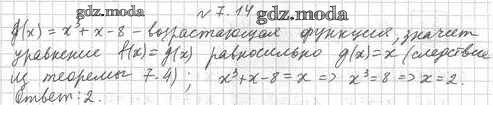 gdz.moda
№ 7.14
gdz.moda
g(x) = x³ + x - 8 - возрастающая функция, значит
уравнение f(x) = g(x) равносильно g(x) = x (следствие
из теоремы 7.4); x³ + x - 8 = x => x³ = 8 => x = 2.
Ответ: 2.